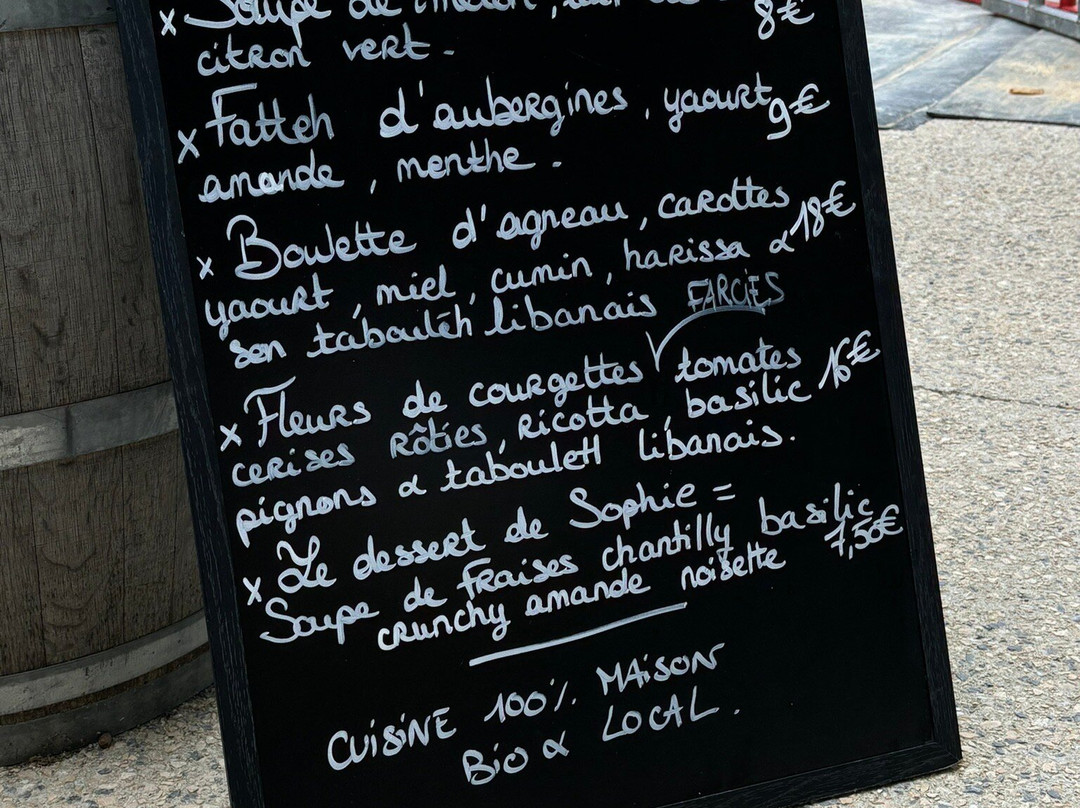 x Soupe de
8€
citron vert.
x Fatteh d'aubergines, yaourt 9€
amande, menthe.
x Boulette d'agneau, carottes
yaourt, miel, cumin, harissa & 18€
son tabouléh libanais
FARCIES
x Fleurs de courgettes √ tomates
cerises Rôties, Ricotta, basilic 16€
pignons & tabouletl libanais.
x Le dessert de Sophie =
Soupe de fraises chantilly basilic
crunchy amande noisette 7,50€
CUISINE 100% MAISON
BIO & LOCAL.